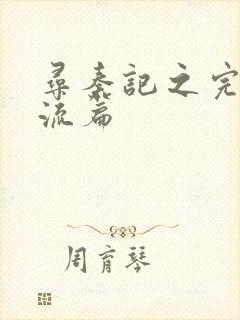 尋秦記之完
流篇
周育琴